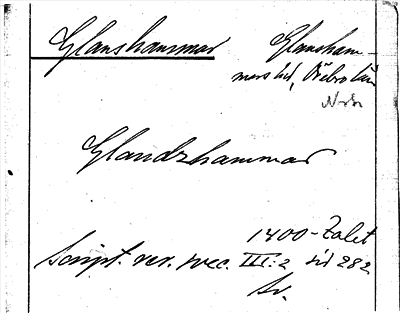 Glanshammar
Glansham-
mars hd, Örebro län
Glandzhammar
1400-talet
Script. rer. svec. III:2 sid 282
Av.